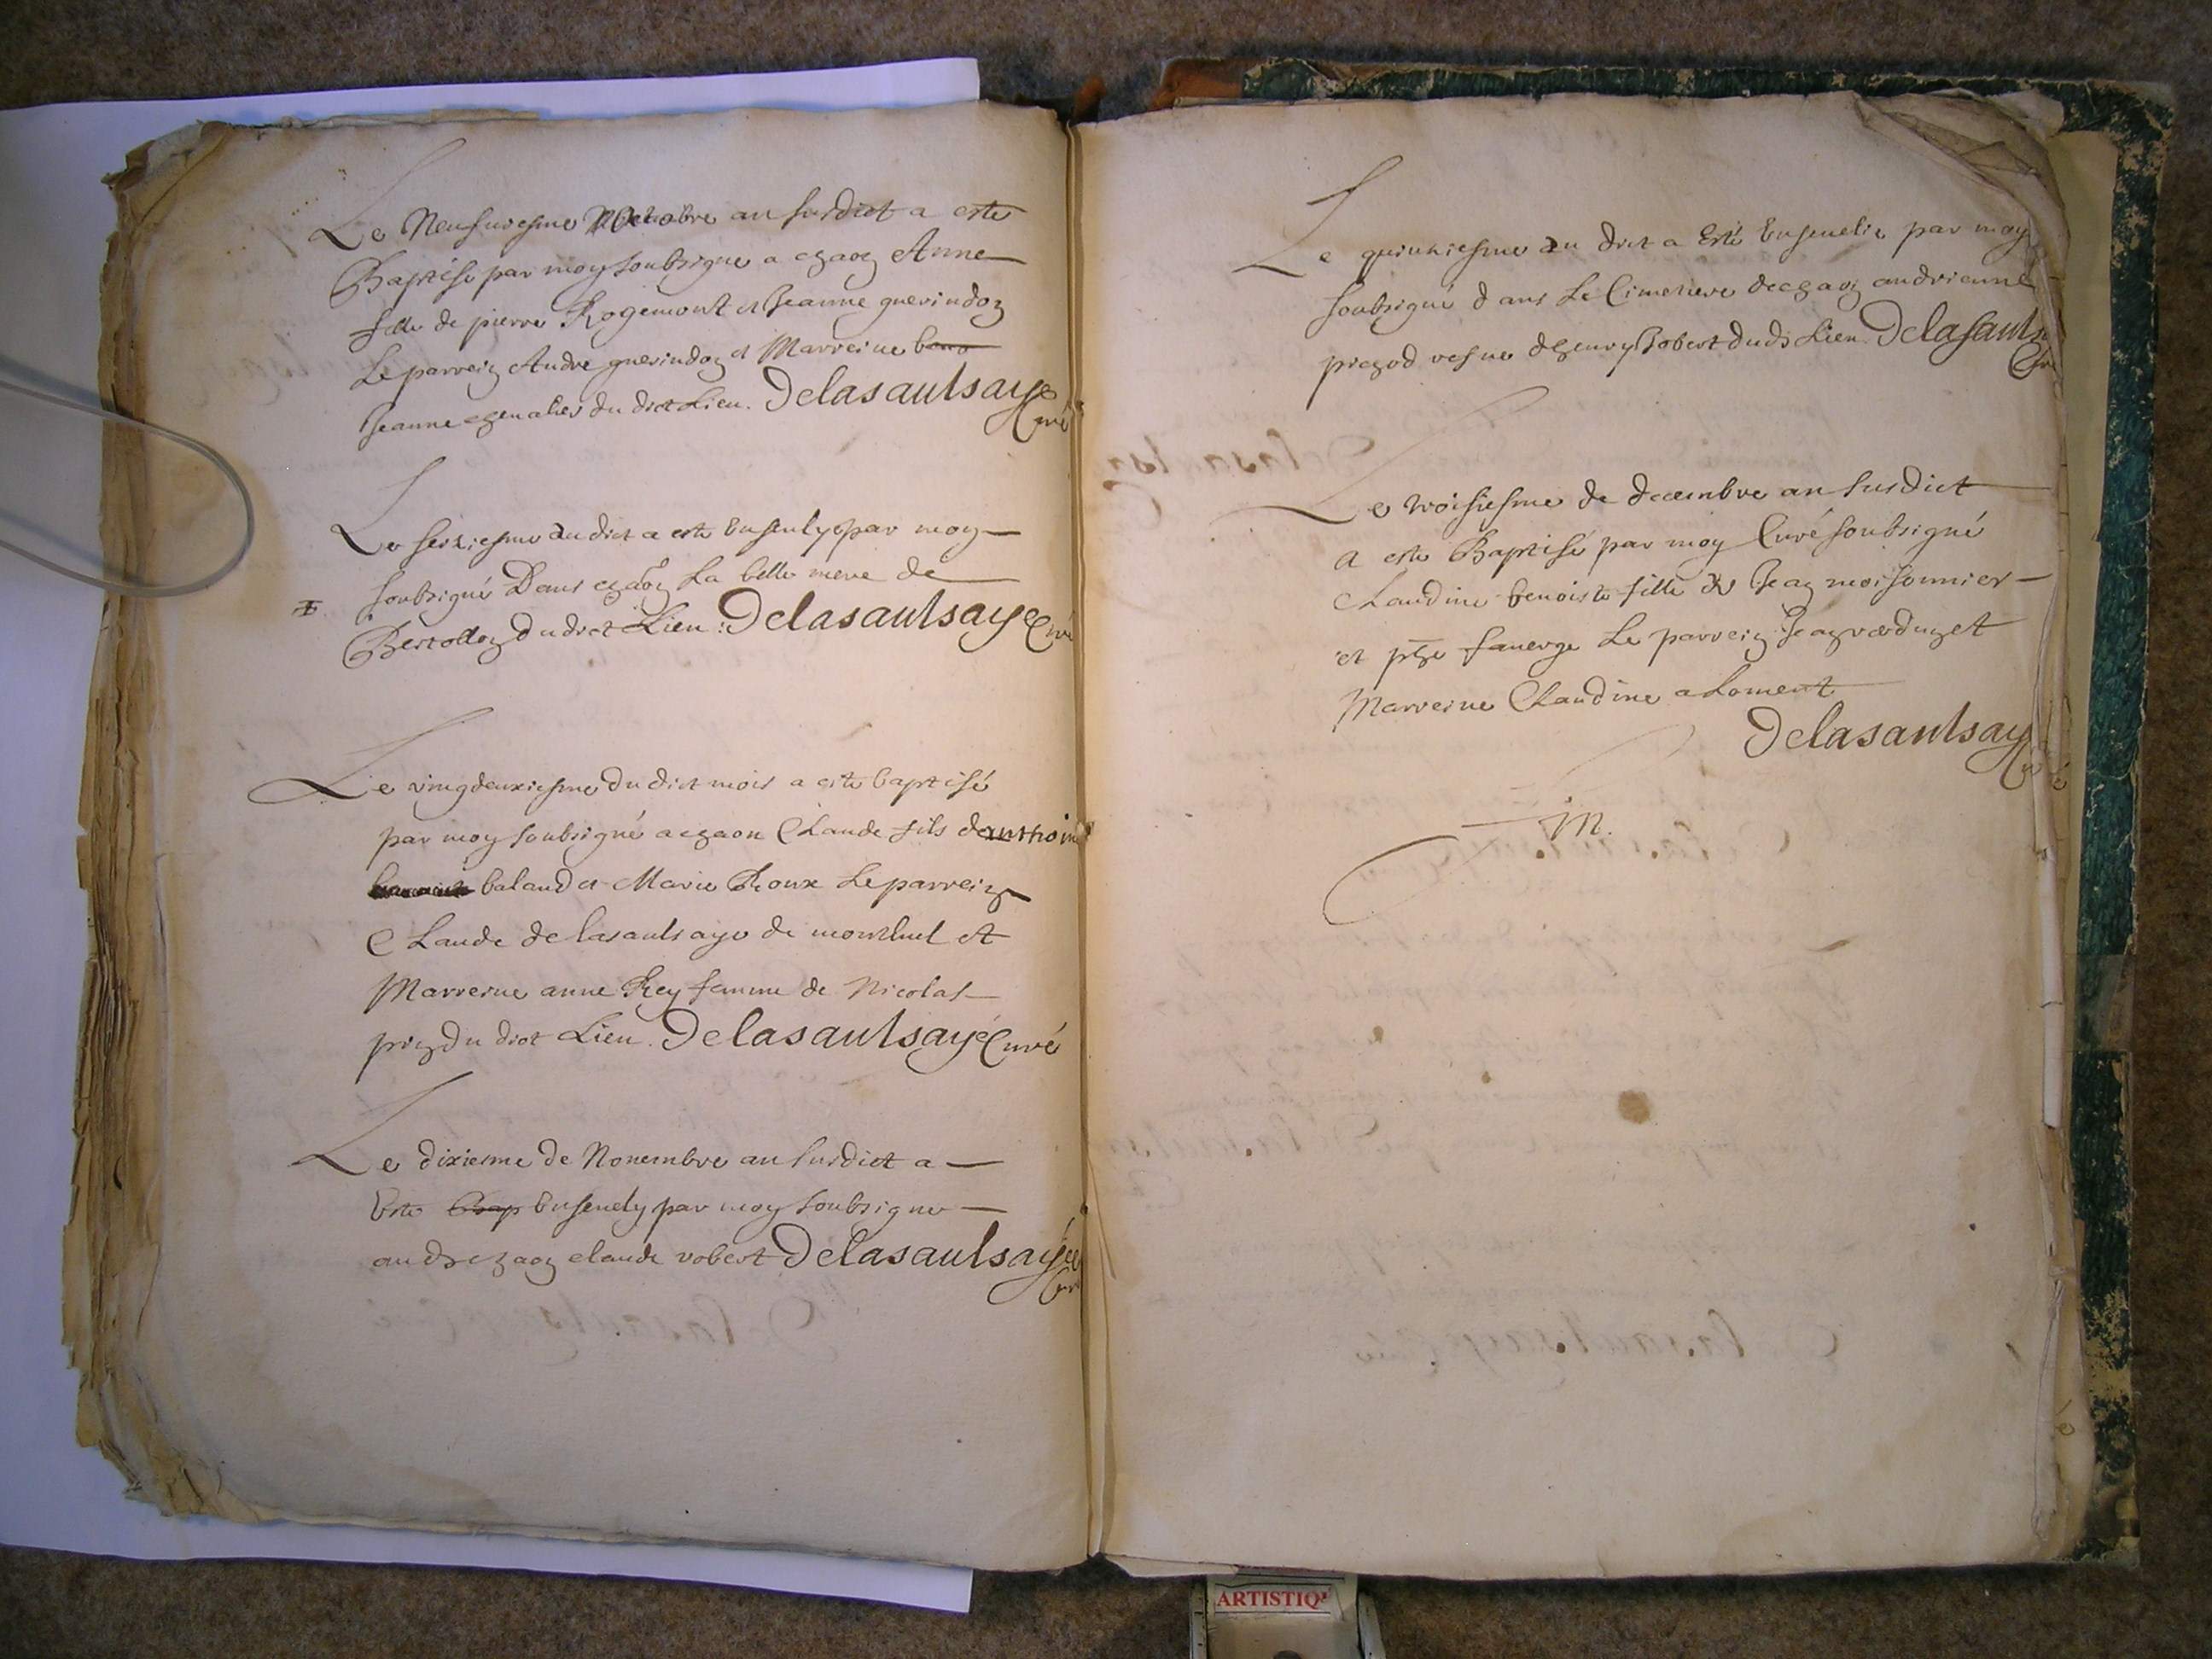 Le Neufviesme Octobre an susdict a esté
Baptisé par moy soubsigné a chaon Anne
fille de pierre Rogemont et Jeanne guerindon
Le parrein Andre guerindon et Marreine
Jeanne du dict Lieu. Delasaulsaye
Curé
Le seiziesme dudict a esté ensevlye par moy
soubsigné Dans chaon La belle mere de
Bertollon dudict Lieu : Delasaulsaye Curé
Le vingdeuxiesme du dict mois a esté baptisé
par moy soubsigné a chaon Claude fils danthoine
baland et Marie Roux Le parrein
Claude delasaulsaye de montluel et
Marreine anne Rey femme de Nicolas
prin du dict Lieu. Delasaulsaye Curé
Le dixiesme de Novembre an susdict a
Esté ensevely par moy soubsigné
audict chaon claude robert Delasaulsaye
Curé
Le quinziesme du dict a Esté Ensevelie par moy
soubsigné dans Le Cimetiere de chaon andrienne
vefve dhenry Robert dudt Lieu Delasauls
Cur
Le troisiesme de decembre an susdict
a esté Baptisé par moy Curé soubsigné
Claudine benoiste fille de Jean moissonnier
et faverge Le parrein Jean
Marreine Claudine aloment
Delasaulsay
ARTISTIQ